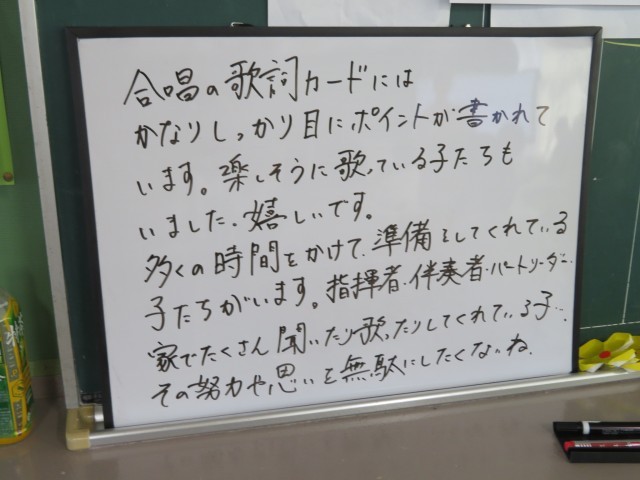 合唱の歌詞カードには
かなりしっかり目にポイントが書かれて
います。楽しそうに歌っている子たちも
いました。嬉しいです。
多くの時間をかけて、準備をしてくれている
子たちがいます。指揮者・伴奏者・パートリーダー・
家でたくさん聞いたり歌ったりしてくれている子…
その努力や思いを無駄にしたくないね。